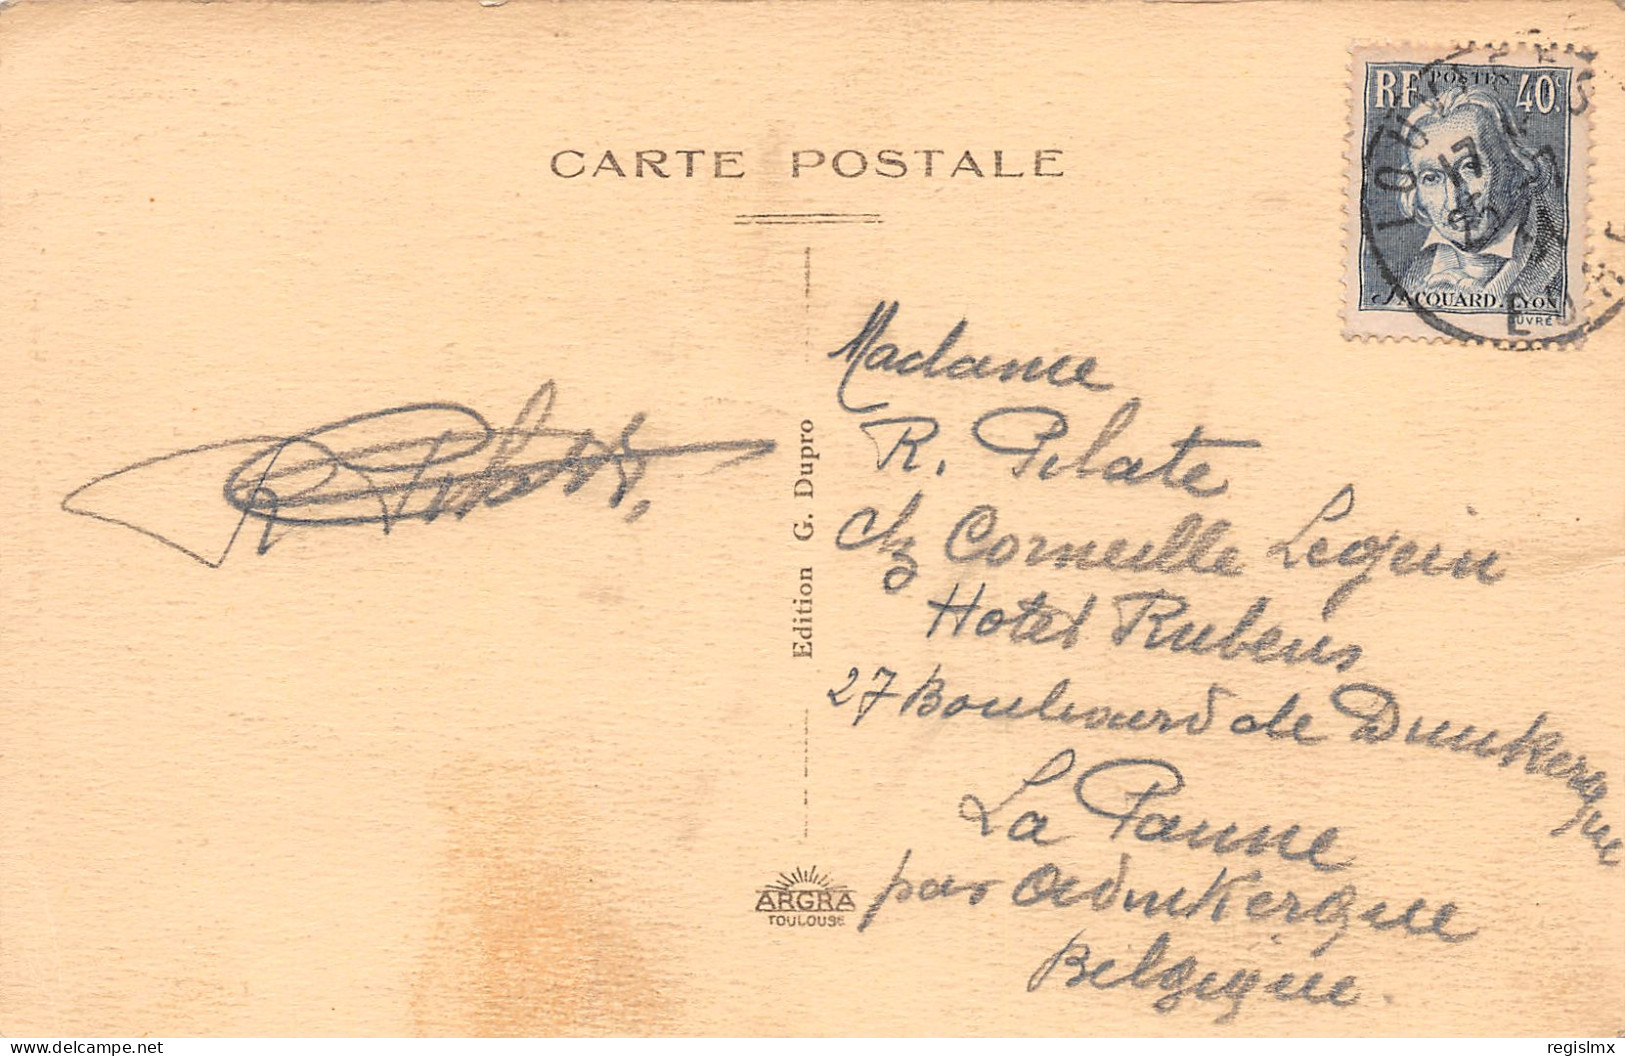 CARTE POSTALE
RF POSTES 40c
JACQUARD. LYON
LOUVIERS
17
35
EURE
R Pilate,
Edition G. Dupro
ARGRA
TOULOUSE
Madame
R. Pilate
chz Corneille Lequin
Hotel Rubens
27 Boulevard de Dunkerque
La Panne
par Adinkerque
Belgique.
delcampe.net
regislmx